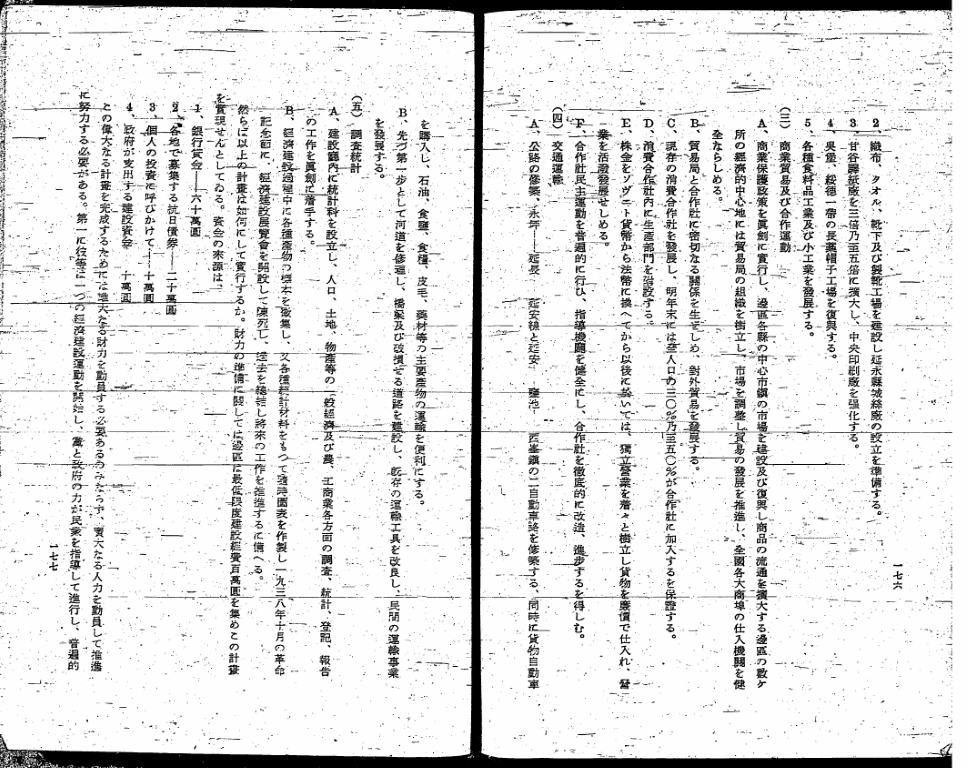 一七六
2、織布、タオル、靴下及び製靴工場を建設し延永縣城絲廠の設立を準備する。
3、甘谷驛紙廠を三倍乃至五倍に擴大し、中央印刷廠を強化する。
4、吳堡、綏德一帶の長襪帽子工場を復興する。
5、各種食料品工業及び小工業を發展する。
(三) 商業貿易及び合作運動
A、商業保護政策を眞劍に實行し、邊區各縣の中心市鎭の市場を建設及び復興し商品の流通を擴大する邊區の數ケ
所の經濟的中心地には貿易局の組織を樹立し、市場を調整し貿易の發展を推進し、全國各大商埠の仕入機關を健
全ならしめる。
B、貿易局と合作社に密切なる關係を生ぜしめ、對外貿易を發展する。
C、現存の消費合作社を發展し、明年末には全人口の三〇%乃至五〇%が合作社に加入するを保證する。
D、消費合作社内に生産部門を附設する。
E、株金をソヴエト貨幣から法幣に換へてから以後に於いては、獨立營業を着々と樹立し貨物を廉價で仕入れ、營
業を活潑發展せしめる。
F、合作社民主運動を普遍的に行ひ、指導機關を健全にし、合作社を徹底的に改造、進步するを得しむ。
(四) 交通運輸
A、公路の修築、永坪——延長 延安線と延安 鹽池 西峯鎭の二自動車路を修築する、同時に貨物自動車
を購入し、石油、食鹽、食糧、皮毛、藥材等の主要產物の運輸を便利にする。
B、先づ第一步として河道を修理し、橋梁及び改損せる道路を建設し、旣存の運輸工具を改良し、民間の運輸事業
を發展する。
(五) 調査統計
A、建設廳内に統計科を設立し、人口、土地、物產等の一般經濟及び農、工商業各方面の調査、統計、登記、報吿
の工作を眞劍に着手する。
B、經濟建設過程中に各種產物の標本を徵集し、又各種統計材料をもつて隨時圖表を作製し一九三八年十月の革命
記念節に、經濟建設展覽會を開設して陳列し、過去を總結し將來の工作を推進するに備へる。
然らば以上の計畫は如何にして實行するか。財力の準備に關しては邊區は最低限度建設經費百萬圓を集めこの計畫
を實現せんとしてゐる。資金の來源は、
1、銀行資金——六十萬圓
2、各地で募集する抗日債券——二十萬圓
3、個人の投資に呼びかけて——十萬圓
4、政府が支出する建設資金——十萬圓
との偉大なる計畫を完成するためには莫大なる財力を動員する必要あるのみならず、莫大なる人力を動員して推進
に努力する必要がある。第一に彼等は一つの經濟建設運動を開始し、黨と政府の力が民衆を指導して進行し、普遍的
一七七